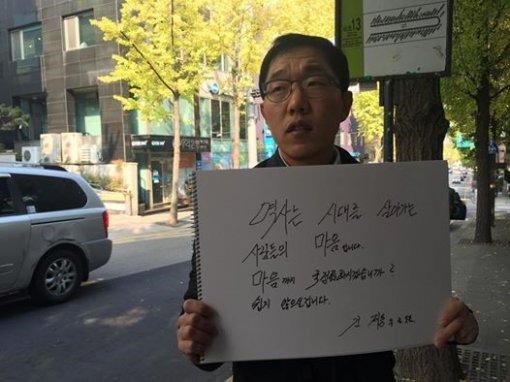 13
역사는 시대를 살아가는
사람들의 마음입니다.
마음까지 국정화하시겠습니까?
쉽지 않으실겁니다.